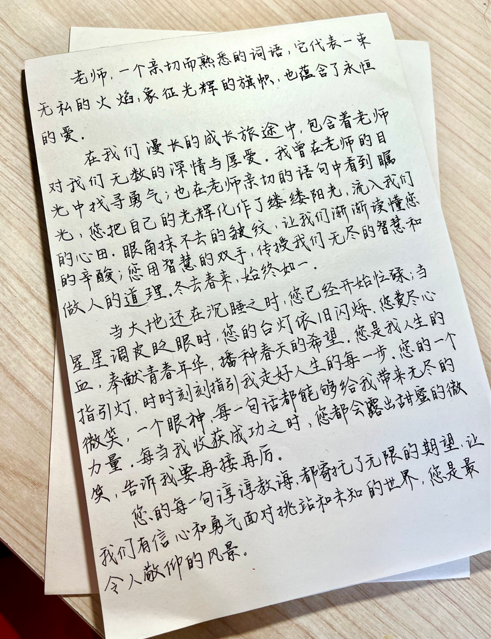 老师，一个亲切而熟悉的词语，它代表一束
无私的火焰，象征光辉的旗帜，也蕴含了永恒
的爱。
在我们漫长的成长旅途中，包含着老师
对我们无数的深情与厚爱。我曾在老师的目
光中找寻勇气；也在老师亲切的语句中看到曙
光，您把自己的光辉化作了缕缕阳光，流入我们
的心田，眼角抹不去的皱纹，让我们渐渐读懂您
的辛酸；您用智慧的双手，传授我们无尽的智慧和
做人的道理。冬去春来，始终如一。
当大地还在沉睡之时，您已经开始忙碌；当
星星调皮眨眼时，您的台灯依旧闪烁。您费尽心
血，奉献青春年华，播种春天的希望。您是我人生的
指引灯，时时刻刻指引我走好人生的每一步。您的一个
微笑，一个眼神，每一句话都能够给我带来无尽的
力量。每当我收获成功之时，您都会露出甜蜜的微
笑，告诉我要再接再厉。
您的每一句谆谆教诲，都寄托了无限的期望，让
我们有信心和勇气面对挑站和未知的世界，您是最
令人敬仰的风景。